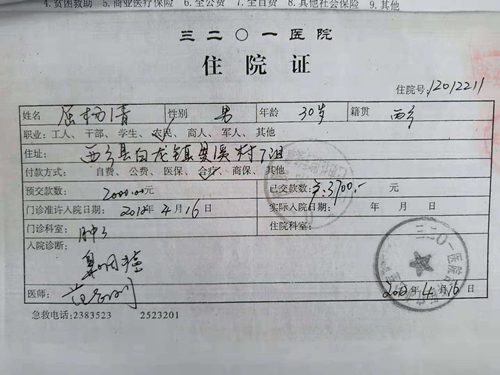 4.贫困救助 5.商业医疗保险 6.全公费 7.全自费 8.其他社会保险 9.其他
三二〇一医院
住院证
住院号:12012211
姓名 屈杨清 性别 男 年龄 30岁 籍贯 西乡
职业:工人、干部、学生、农民、商人、军人、其他
住址: 西乡县白龙镇 溪村7组
付款方式: 自费、公费、医保、合疗、商保、其他
预交款数: 2000.00元 已交款数: 3700.-
门诊准许入院日期: 2012年4月16日 实际入院日期: 年 月 日
门诊科室: 肿 住院科室:
入院诊断:
鼻咽癌
三二〇一医院
医师:
2012年4月16日
急救电话:2383523 2523201